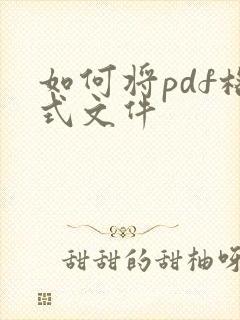 如何将pdf格
式文件
甜甜的甜柚呀